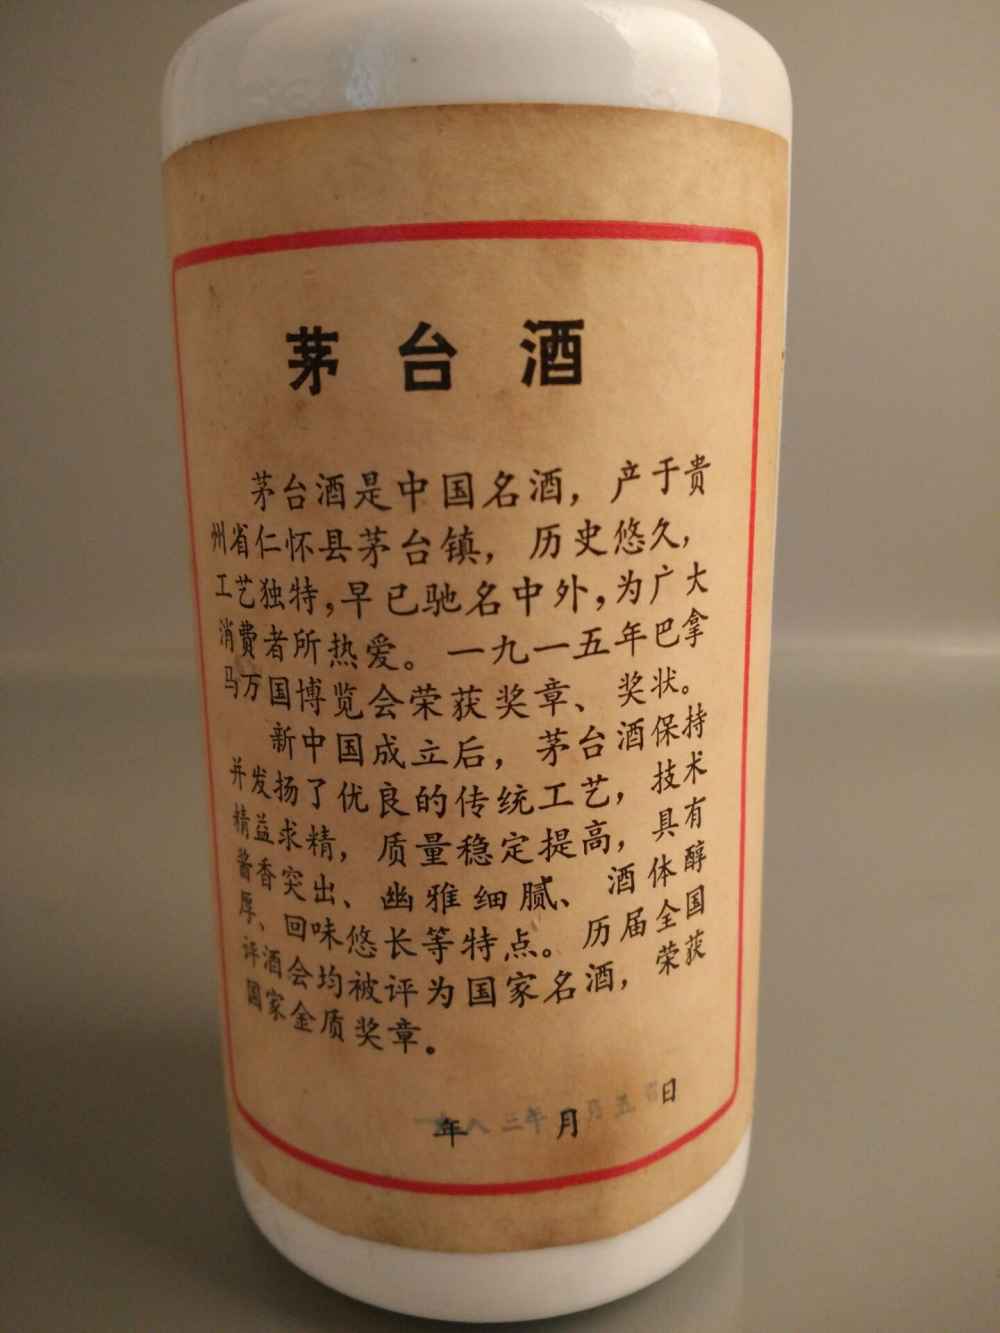 茅台酒
茅台酒是中国名酒，产于贵
州省仁怀县茅台镇，历史悠久，
工艺独特，早已驰名中外，为广大
消费者所热爱。一九一五年巴拿
马万国博览会荣获奖章、奖状。
新中国成立后，茅台酒保持
并发扬了优良的传统工艺，技术
精益求精，质量稳定提高，具有
酱香突出、幽雅细腻、酒体醇
厚、回味悠长等特点。历届全国
评酒会均被评为国家名酒，荣获
国家金质奖章。
年 月 日
八三年 月五